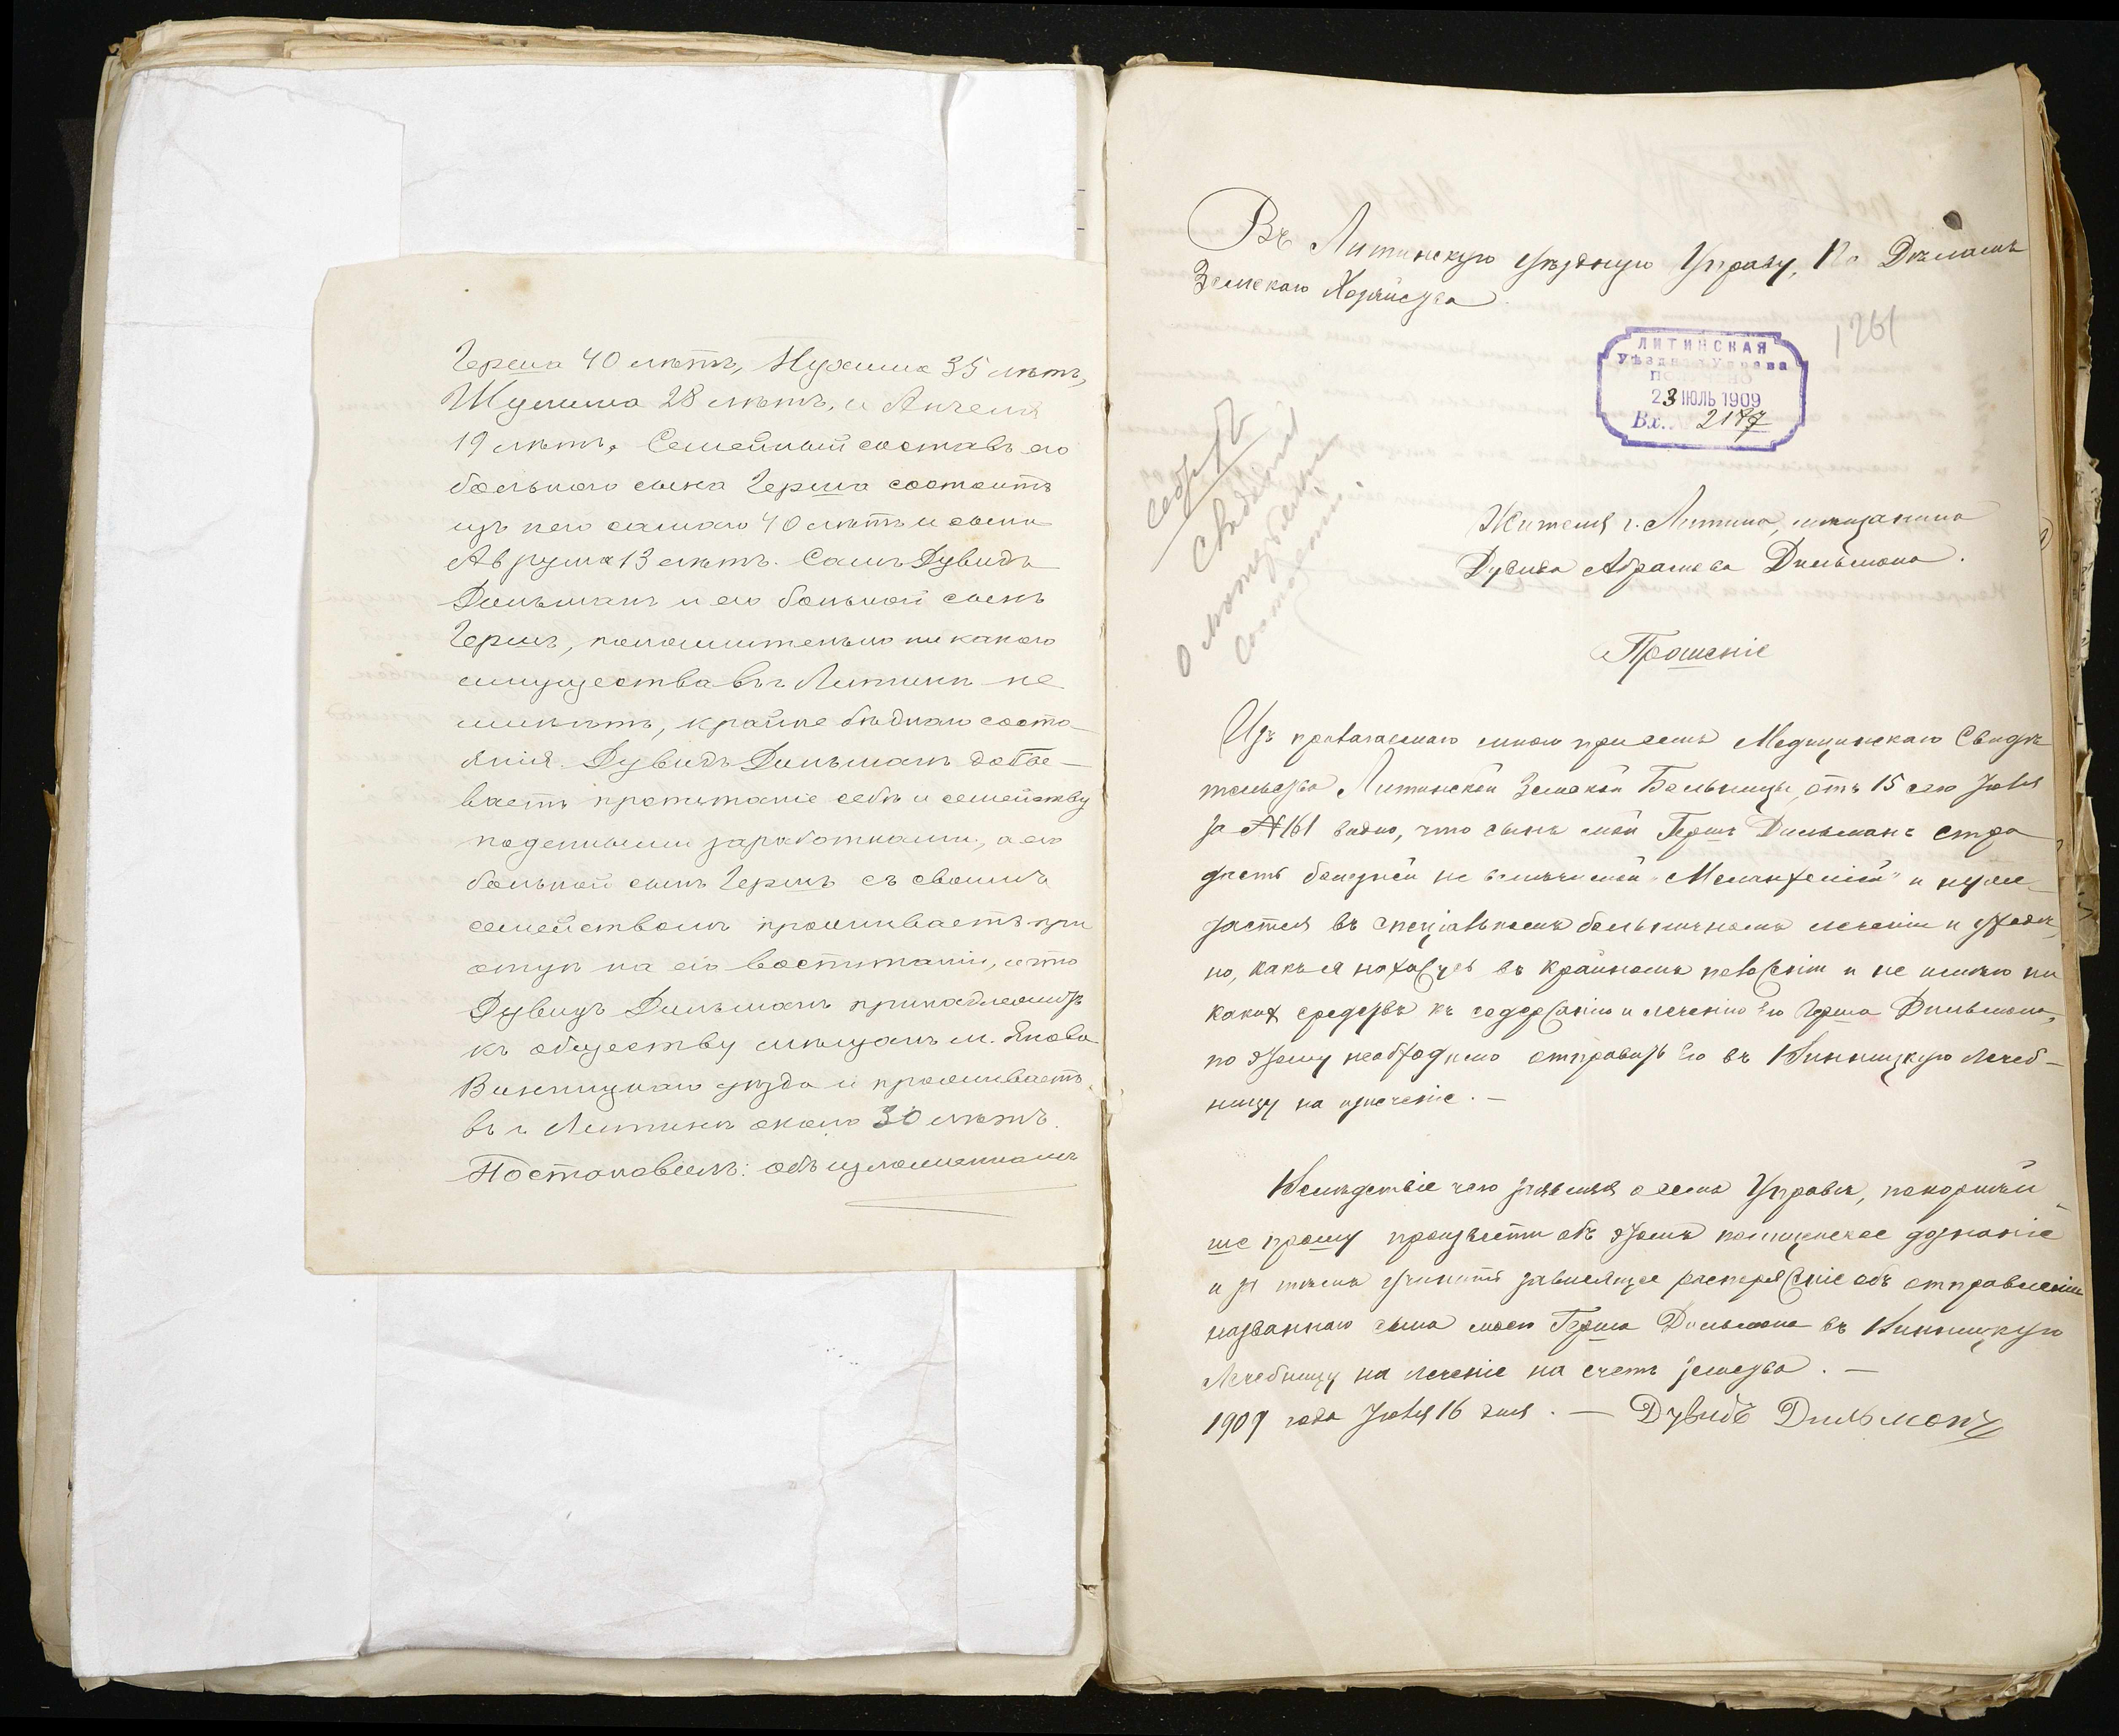 Герша 40 лѣтъ, Нухима 35 лѣтъ,
Шулима 28 лѣтъ, и Анчеля
19 лѣтъ. Семейный составъ его
больного сына Герша состоитъ
изъ него самаго 40 лѣтъ и сына
Аврума 13 лѣтъ. Самъ Дувидъ
Дильманъ и его больной сынъ
Гершъ, положительно никакого
имущества въ г. Литинѣ не
имѣютъ, крайне бѣднаго состо-
янія. Дувидъ Дильманъ добы-
ваетъ пропитаніе себѣ и семейству
поденными заработками, а его
больной сынъ Гершъ съ своимъ
семействомъ проживаетъ при
отцѣ на его воспитаніи, и что
Дувидъ Дильманъ принадлежитъ
къ обществу мѣщанъ м. Янова
Винницкаго уѣзда и проживаетъ
въ г. Литинѣ около 30 лѣтъ.
Постановилъ: объ изложенномъ
Въ Литинскую Уѣздную Управу, По Дѣламъ
Земскаго Хозяйства
1261
ЛИТИНСКАЯ
Уѣздная Управа
ПОЛУЧЕНО
23 ІЮЛЬ 1909
Вх. № 2177
Свѣдѣнія
о матеріальн
состояніи.
Жителя г. Литина, мѣщанина
Дувида Абрамова Дильмана.
Прошеніе
Изъ прилагаемаго мною при семъ Медицинскаго Свидѣ
тельства Литинской Земской Больницы, отъ 15 сего Іюля
за № 161 видно, что сынъ мой Гершъ Дильманъ стра
даетъ болезней не излѣчимой "Меланхоліей" и нуж-
дается въ спеціальномъ больничномъ леченіи и уходѣ,
но, какъ я нахожусь въ крайномъ положеніи и не имѣю ни
какихъ средствъ къ содержанію и леченію его Герша Дильмана,
по этому необходимо отправить его въ Винницкую Лечеб-
ницу на излеченіе. —
Вслѣдствіе чего заявляя о семъ Управѣ, покорнѣй
ше прошу произвести объ этомъ полицейское дознаніе
и за тѣмъ учинить зависящее распоряженіе объ отправленіи
названнаго сына моего Герша Дильмана въ Винницкую
Лечебницу на леченіе на счетъ земства. —
1909 года Іюля 16 дня. — Дувидъ Дильманъ